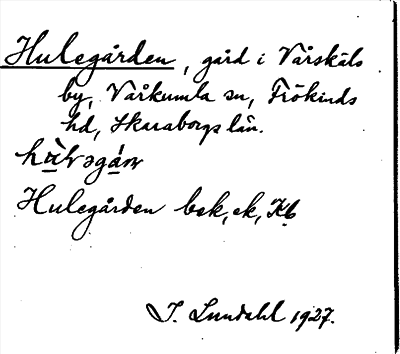 Hulegården, gård i Vårskåls
by, Vårkumla sn, Frökinds
hd, Skaraborgs län.
Hulegården bek, ek, Kb
I. Lundahl 1927.